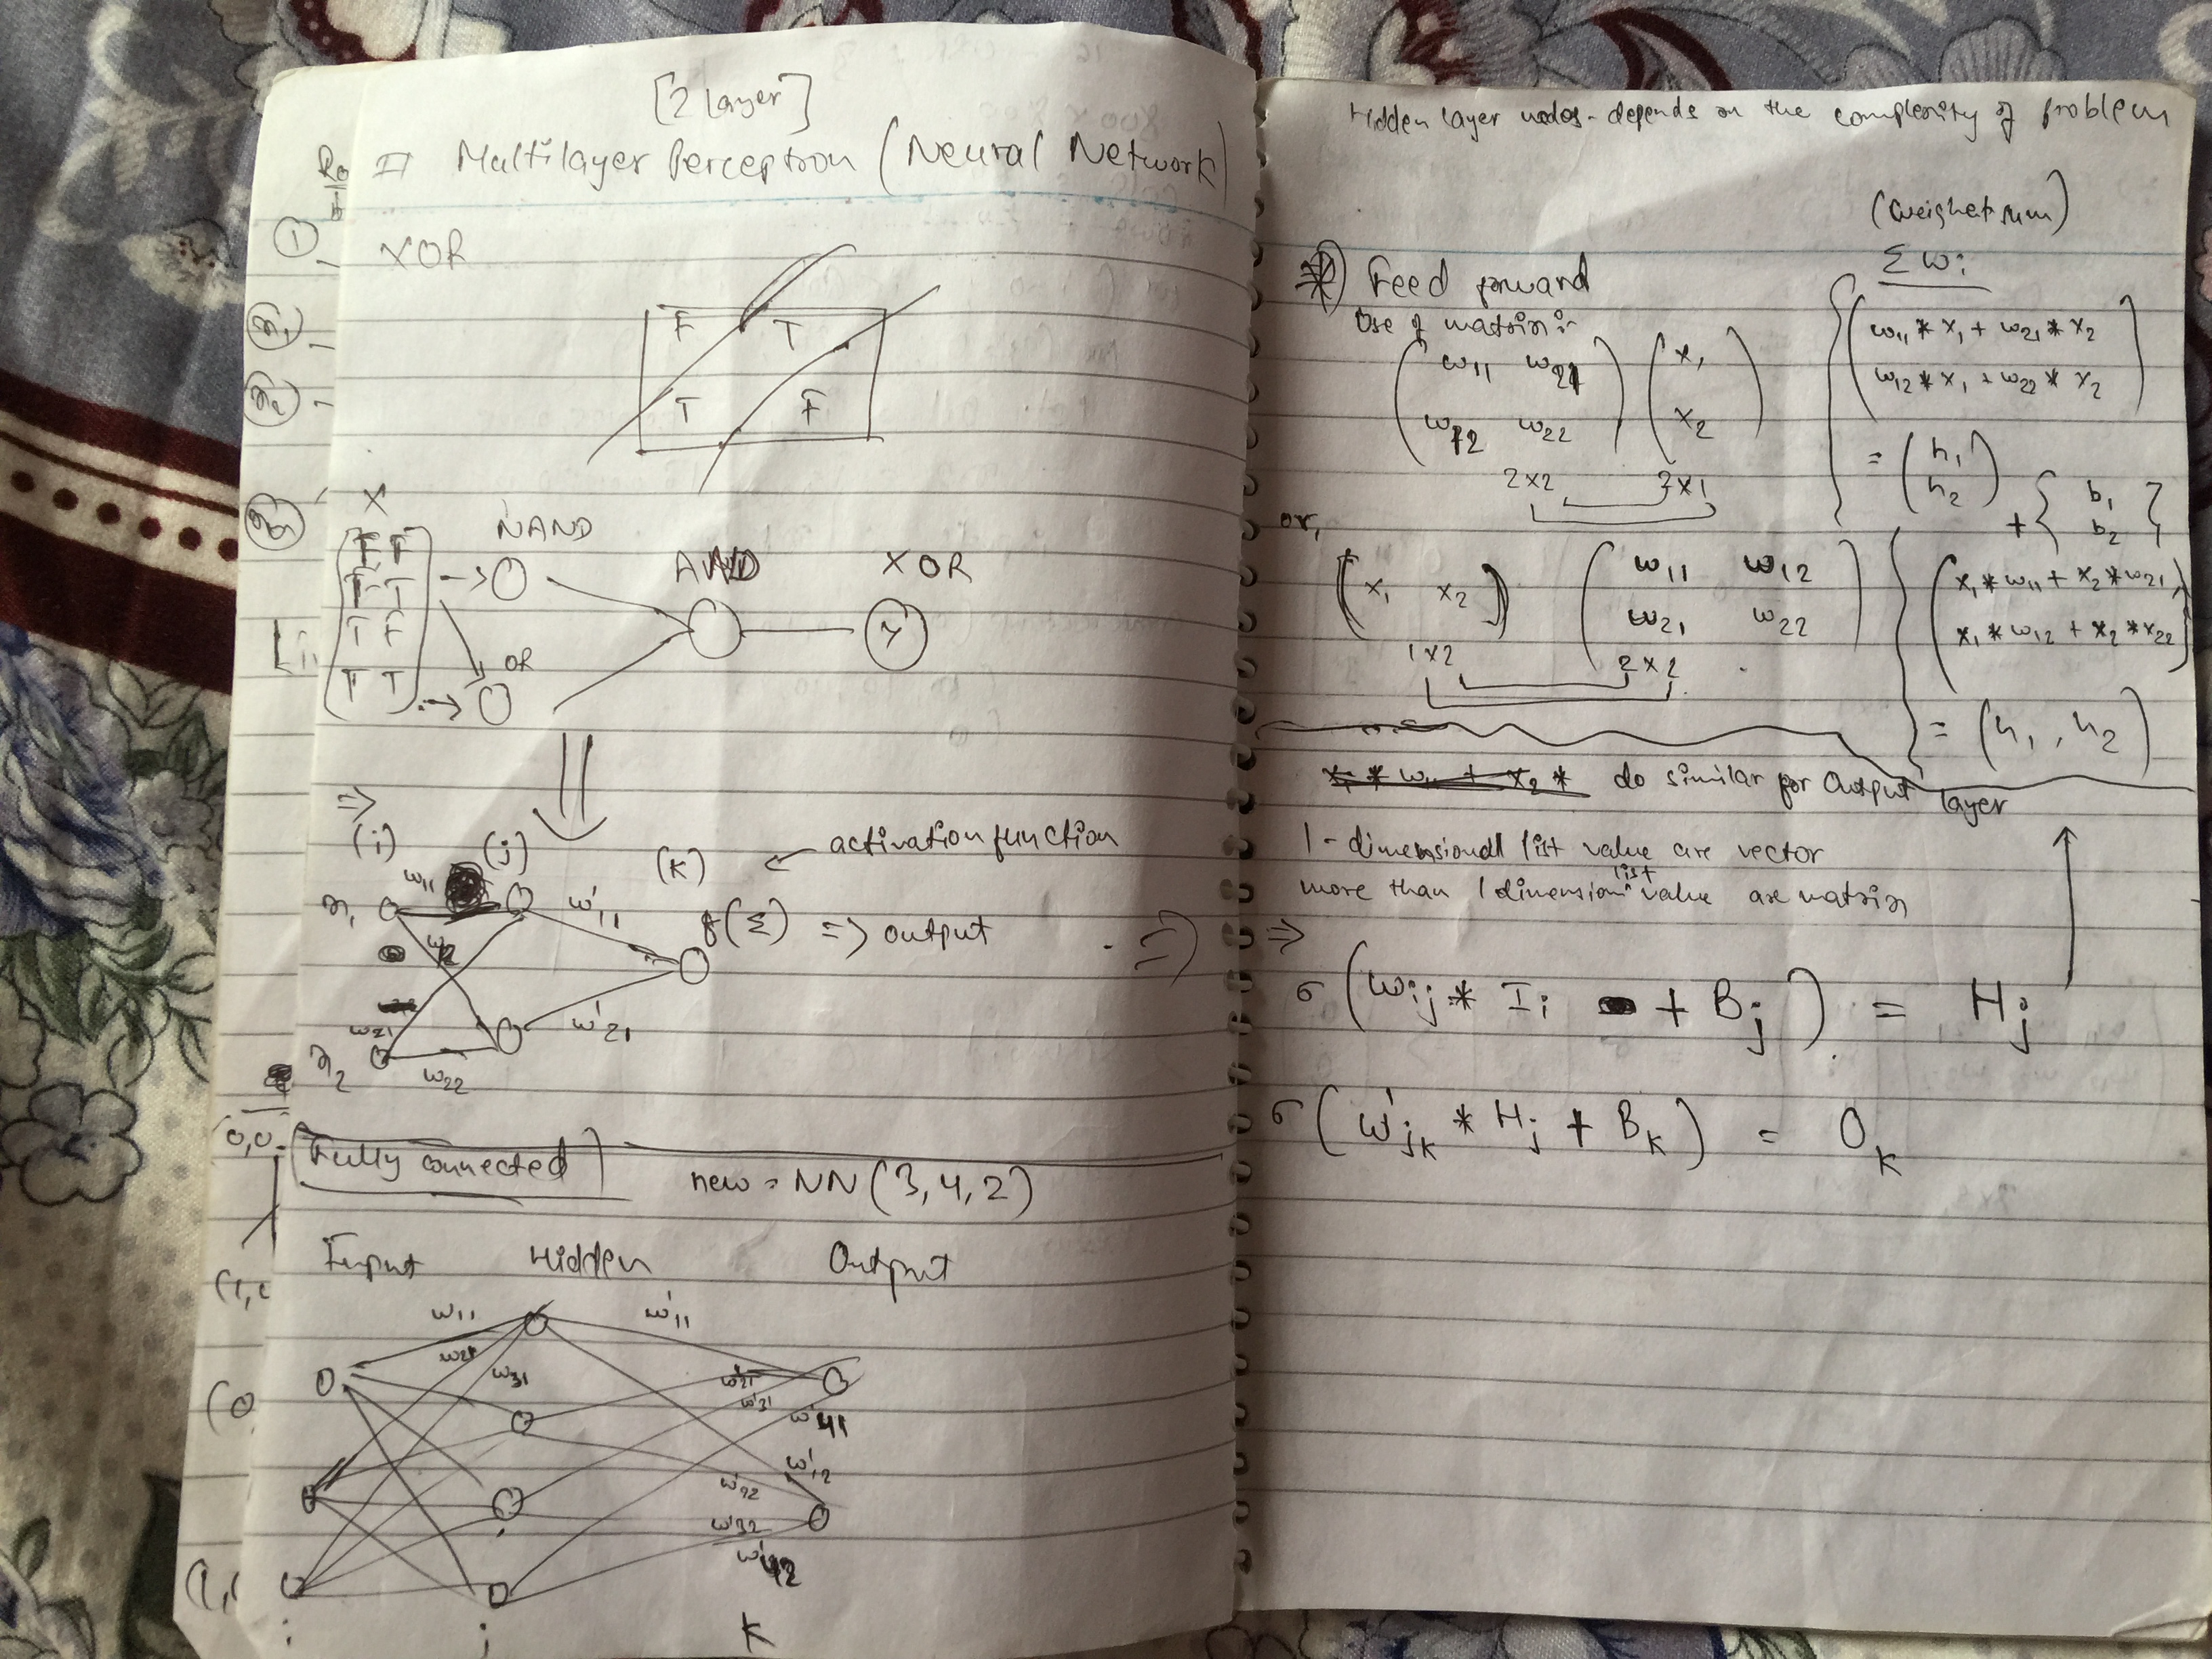 [2 layer]
# Multilayer Perceptron (Neural Network)
XOR
F T
T F
X NAND AND XOR
F F
F T
T F
T T
OR
Y
=> (i) (j) (k) activation function
x1 w11 w'11 f(Σ) => output
w12
w21
x2 w22 w'21
[Fully connected] new = NN (3,4,2)
Input Hidden Output
w11 w'11
w21
w31
w'21
w'31
w'41
w'12
w'22
w'32
w'42
k
Hidden layer nodes depends on the complexity of problem
(weighted sum)
* Feed forward Σwi
Use of matrix:
( w11 w21 ) ( x1 ) ( w11 * x1 + w21 * x2 )
( w12 w22 ) ( x2 ) ( w12 * x1 + w22 * x2 )
2x2 2x1 = ( h1 h2 ) + { b1 b2 }
or,
( x1 x2 ) ( w11 w12 ) ( x1 * w11 + x2 * w21 )
( w21 w22 ) ( x1 * w12 + x2 * x22 )
1x2 2x2
= (h1, h2)
do similar for output layer
1-dimensional list value are vector
more than 1 dimension list value are matrix
=>
σ ( wij * Ii + Bj ) = Hj
σ ( w'jk * Hj + Bk ) = Ok